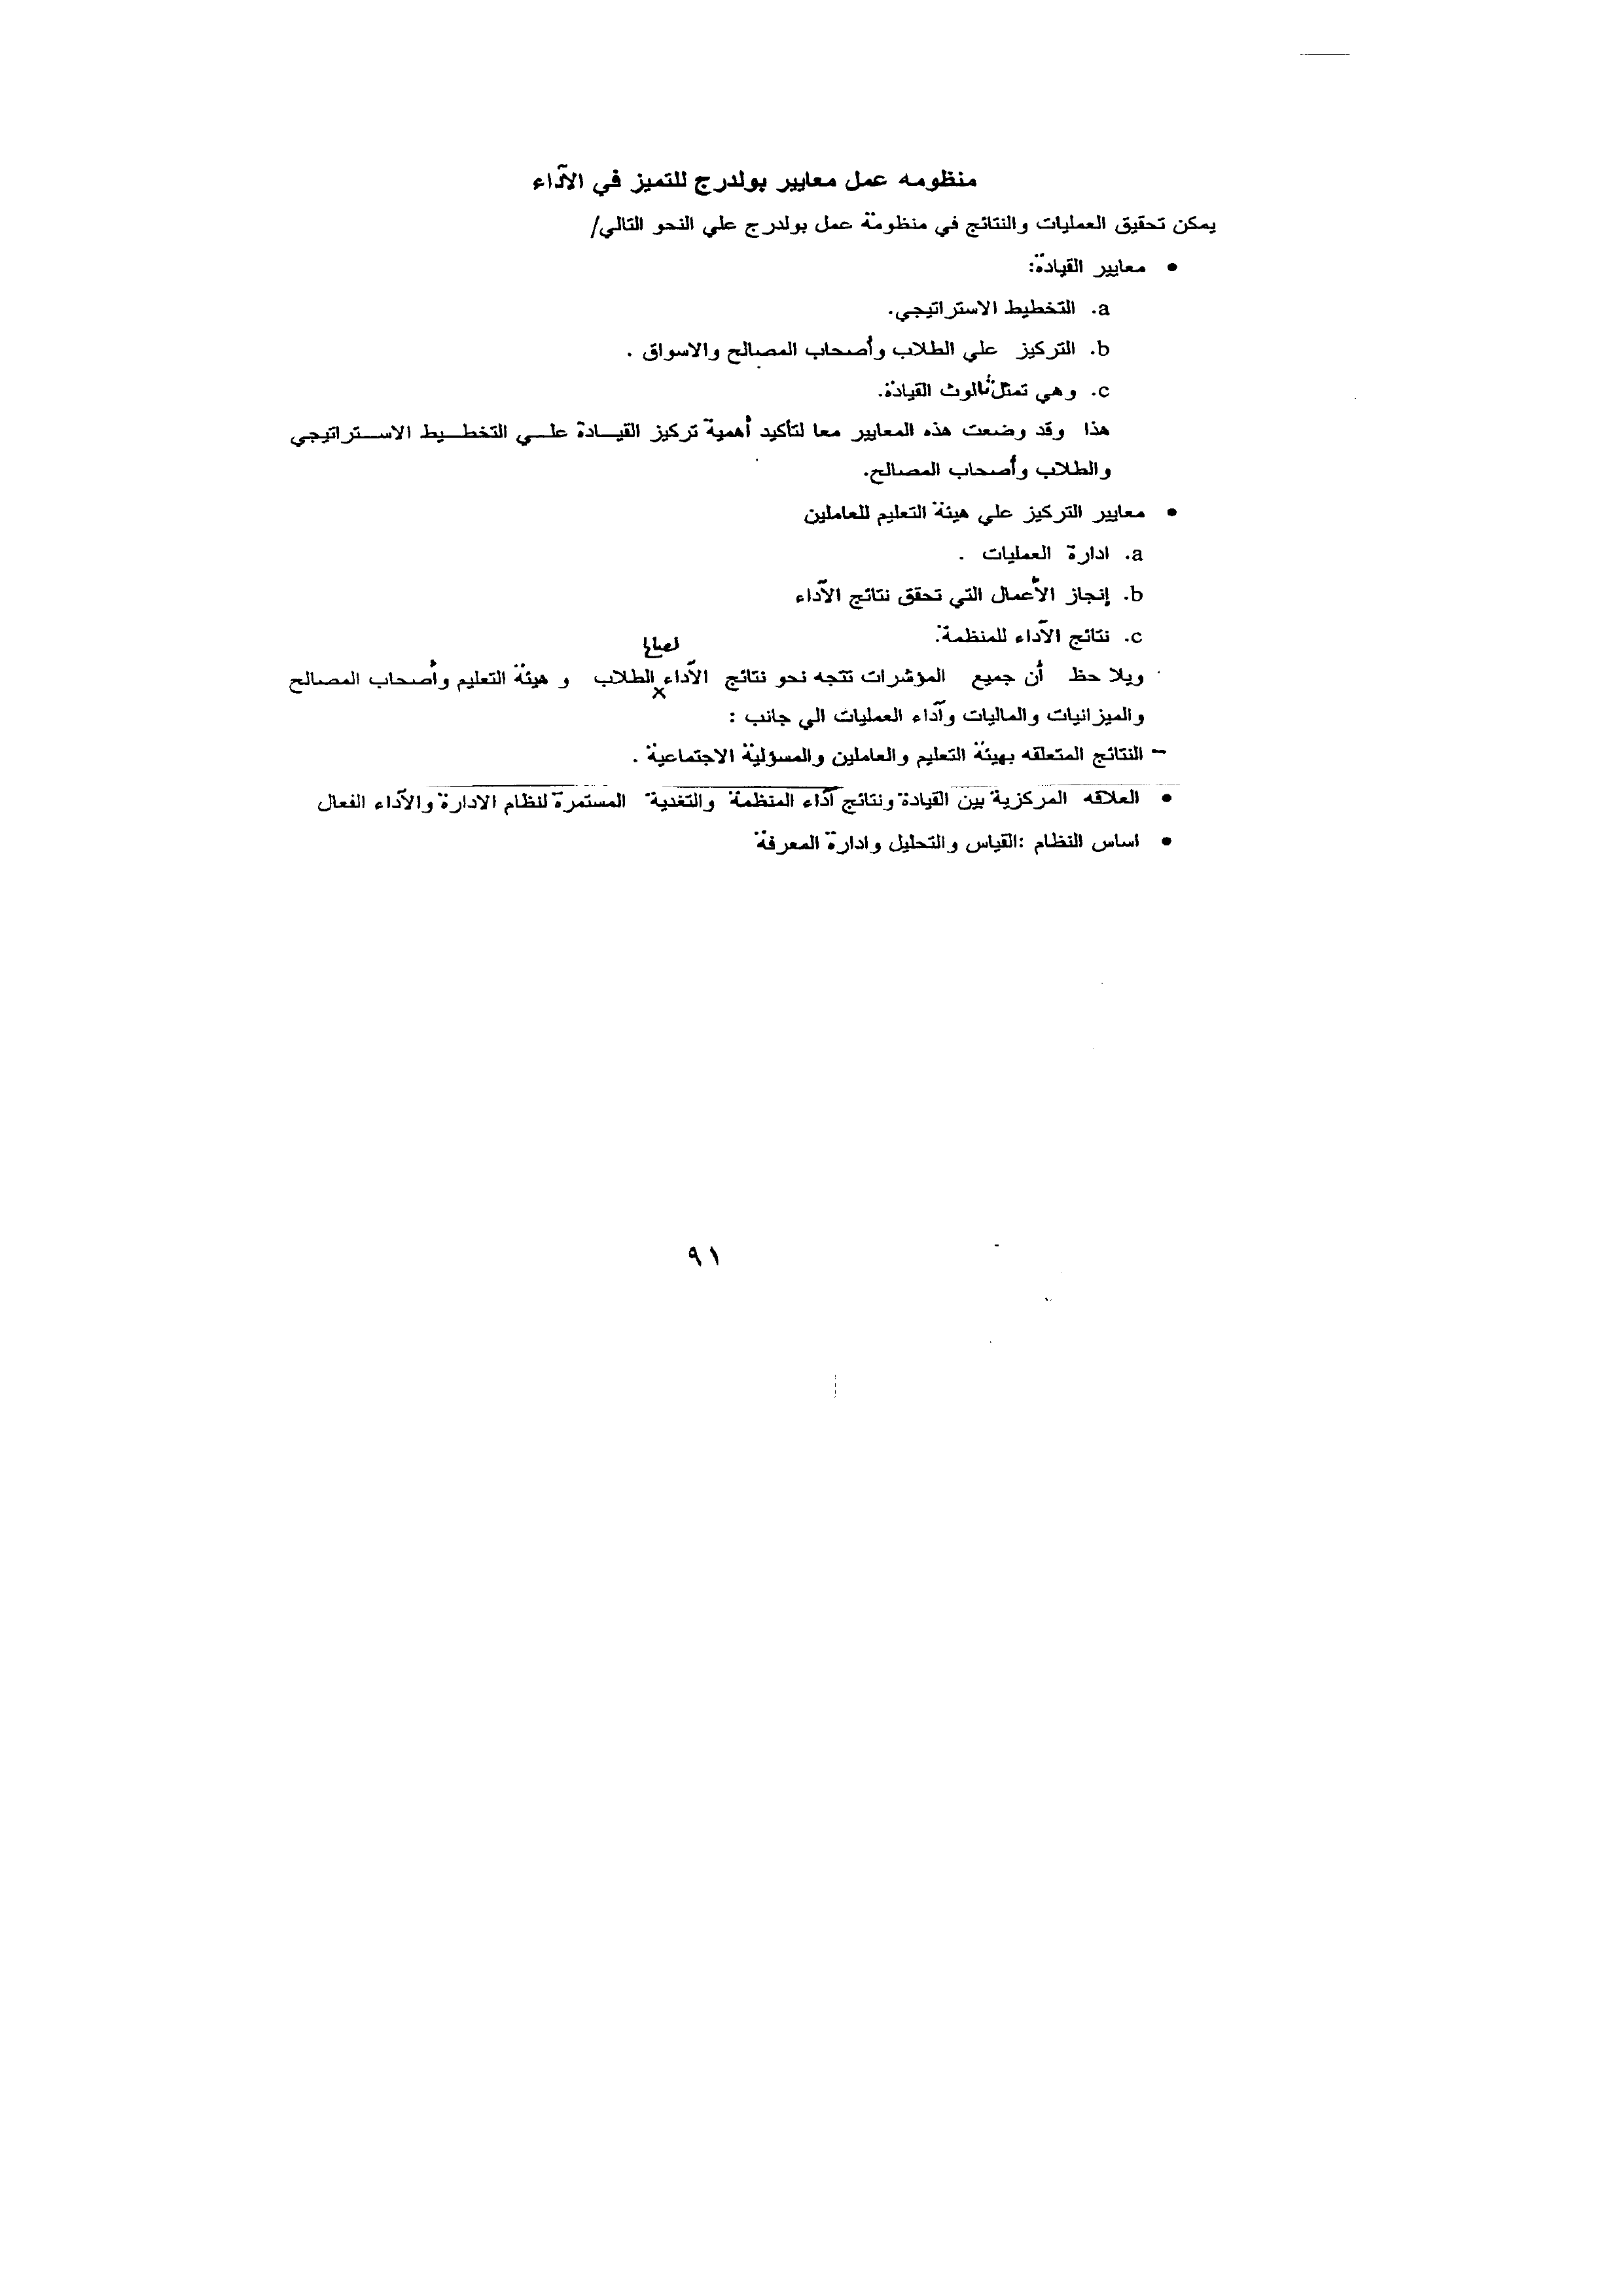 منظومه عمل معايير بولدرج للتميز في الآداء
يمكن تحقيق العمليات والنتائج في منظومة عمل بولدرج علي النحو التالي/
• معايير القيادة:
a. التخطيط الاستراتيجي.
b. التركيز علي الطلاب وأصحاب المصالح والاسواق .
c. وهي تمثل ثالوث القيادة.
هذا وقد وضعت هذه المعايير معا لتأكيد أهمية تركيز القيـادة علـي التخطـيط الاسـتراتيجي
والطلاب وأصحاب المصالح.
• معايير التركيز علي هيئة التعليم للعاملين
a. ادارة العمليات .
b. إنجاز الأعمال التي تحقق نتائج الآداء
c. نتائج الآداء للمنظمة.
ويلا حظ أن جميع المؤشرات تتجه نحو نتائج الآداء الطلاب و هيئة التعليم وأصحاب المصالح
والميزانيات والماليات وآداء العمليات الي جانب :
– النتائج المتعلقه بهيئة التعليم والعاملين والمسؤلية الاجتماعية .
• العلاقه المركزية بين القيادة ونتائج آداء المنظمة والتغدية المستمرة لنظام الادارة والآداء الفعال
• اساس النظام :القياس والتحليل وادارة المعرفة
٩١